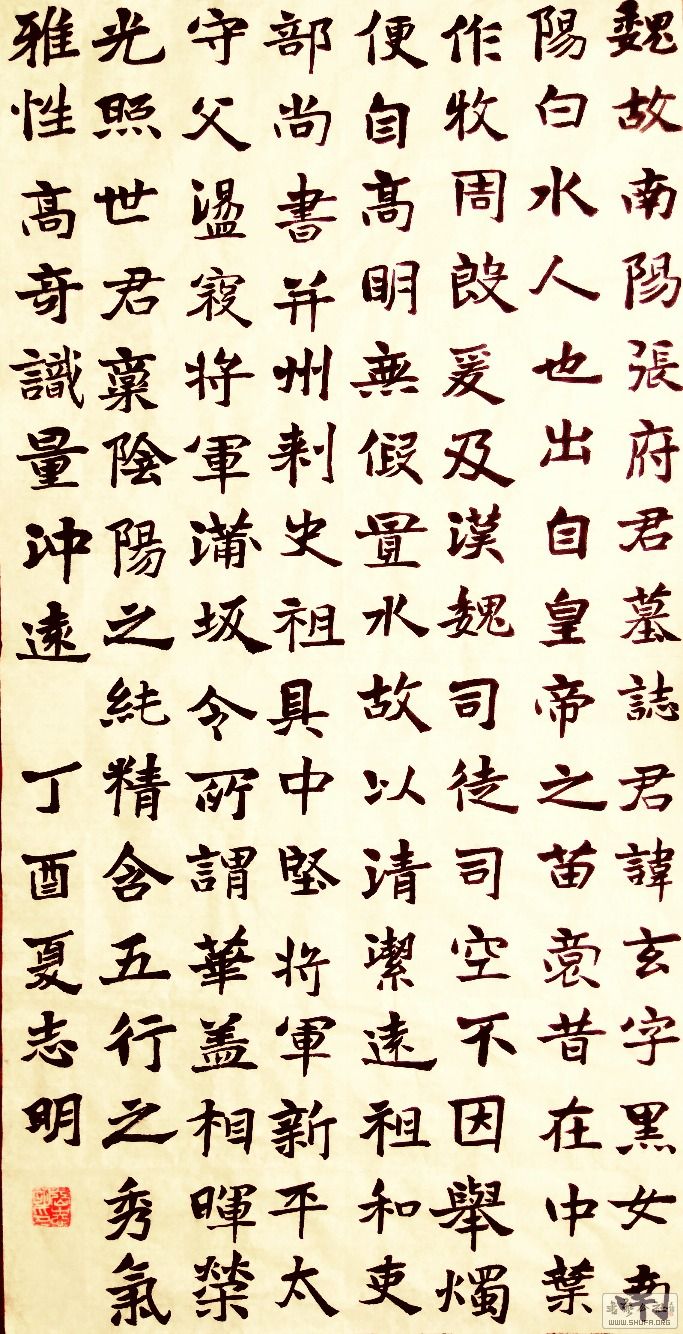 魏故南陽張府君墓誌君諱玄字黑女南
陽白水人也出自皇帝之苗裔昔在中葉
作牧周殷爰及漢魏司徒司空不因舉燭
便自高明無假置水故以清潔遠祖和吏
部尚書并州刺史祖具中堅將軍新平太
守父盪寇將軍蒲坂令所謂華蓋相暉榮
光照世君稟陰陽之純精含五行之秀氣
雅性高奇識量沖遠 丁酉夏志明
WWW.SHUFA.ORG